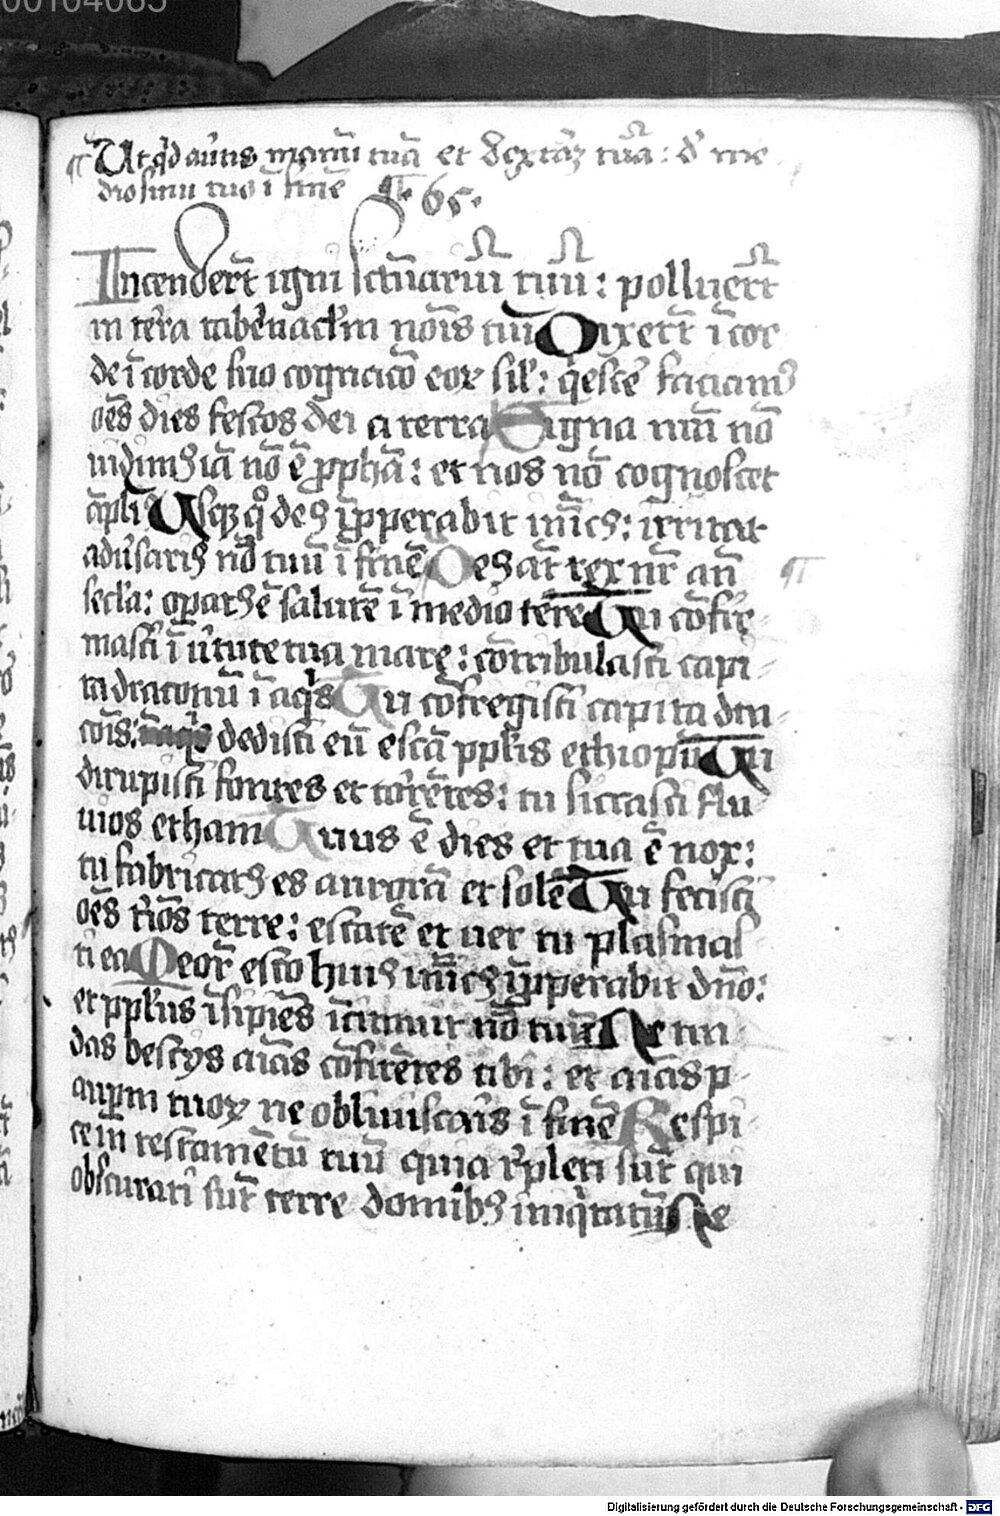 00104065
Ut qd au̾tis manū tuā et dext̾aꝫ tuā : d̾ me
dio sinu tuo ī finē ¶ · 65 ·
Incender̄t igni sctūariū tuū : polluer̄t
in ter̾a tab̾nacl̾m nois tui Dixer̄t ī cor
de ī corde suo cognacō eoꝝ sil̾ : q̾esce̾ faciamꝰ
oēs dies festos dei a terra Signa n̄ra nō
vidimꝰ iā nō ē ꝓphā : et nos nō cognoscet
āpliꝰ Usqꝫ q̊ deꝰ īpꝑabit inīcꝰ : irritat
adu̾sariꝰ nō̄ tuū ī finē Deꝰ aūt rex nr̄ an̄
secl̾a : oꝑatꝰ ē salutē ī medio ter̾e Tu cōfir
masti ī u̾tute tua mare : cōtribulasti capi
ta draconū ī aqͥs Tu cōfregisti capita dra
cōis : dedisti eū escā ppl̾is ethiopū Tu
dirupisti fontes et torrētes : tu siccasti flu
uios etham Tuus ē dies et tua ē nox :
tu fabricatꝰ es aurorā et solē Tu fecisti
oēs t̾mōs terre : estatē et uer tu plasmas
ti ea Memor esto huiꝰ inīcꝰ īpꝑabit dn̄o :
et ppl̾us īsipiēs īcitauit nō̄ tuū Ne tra
das bestiis aīas cōfitētes tibi : et aīas p
auꝑum tuoꝝ ne obliuiscaris ī finē Respi
ce in testamētū tuū quia r̾pleti sūt qui
obscurati sūt terre domibꝰ iniqͥtatū Ne
Digitalisierung gefördert durch die Deutsche Forschungsgemeinschaft - DFG